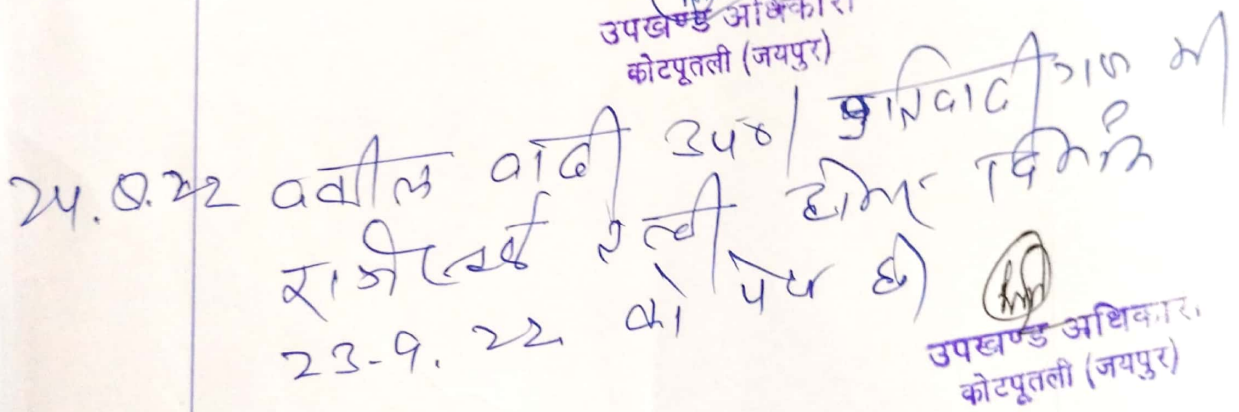 उपखण्ड अधिकारी
कोटपूतली (जयपुर)
24.8.22 वकील वादी उप०। प्रतिवादीगण की
रजि० तलबी होकर दिनांक
23-9.22 को पेश हो।
उपखण्ड अधिकारी
कोटपूतली (जयपुर)